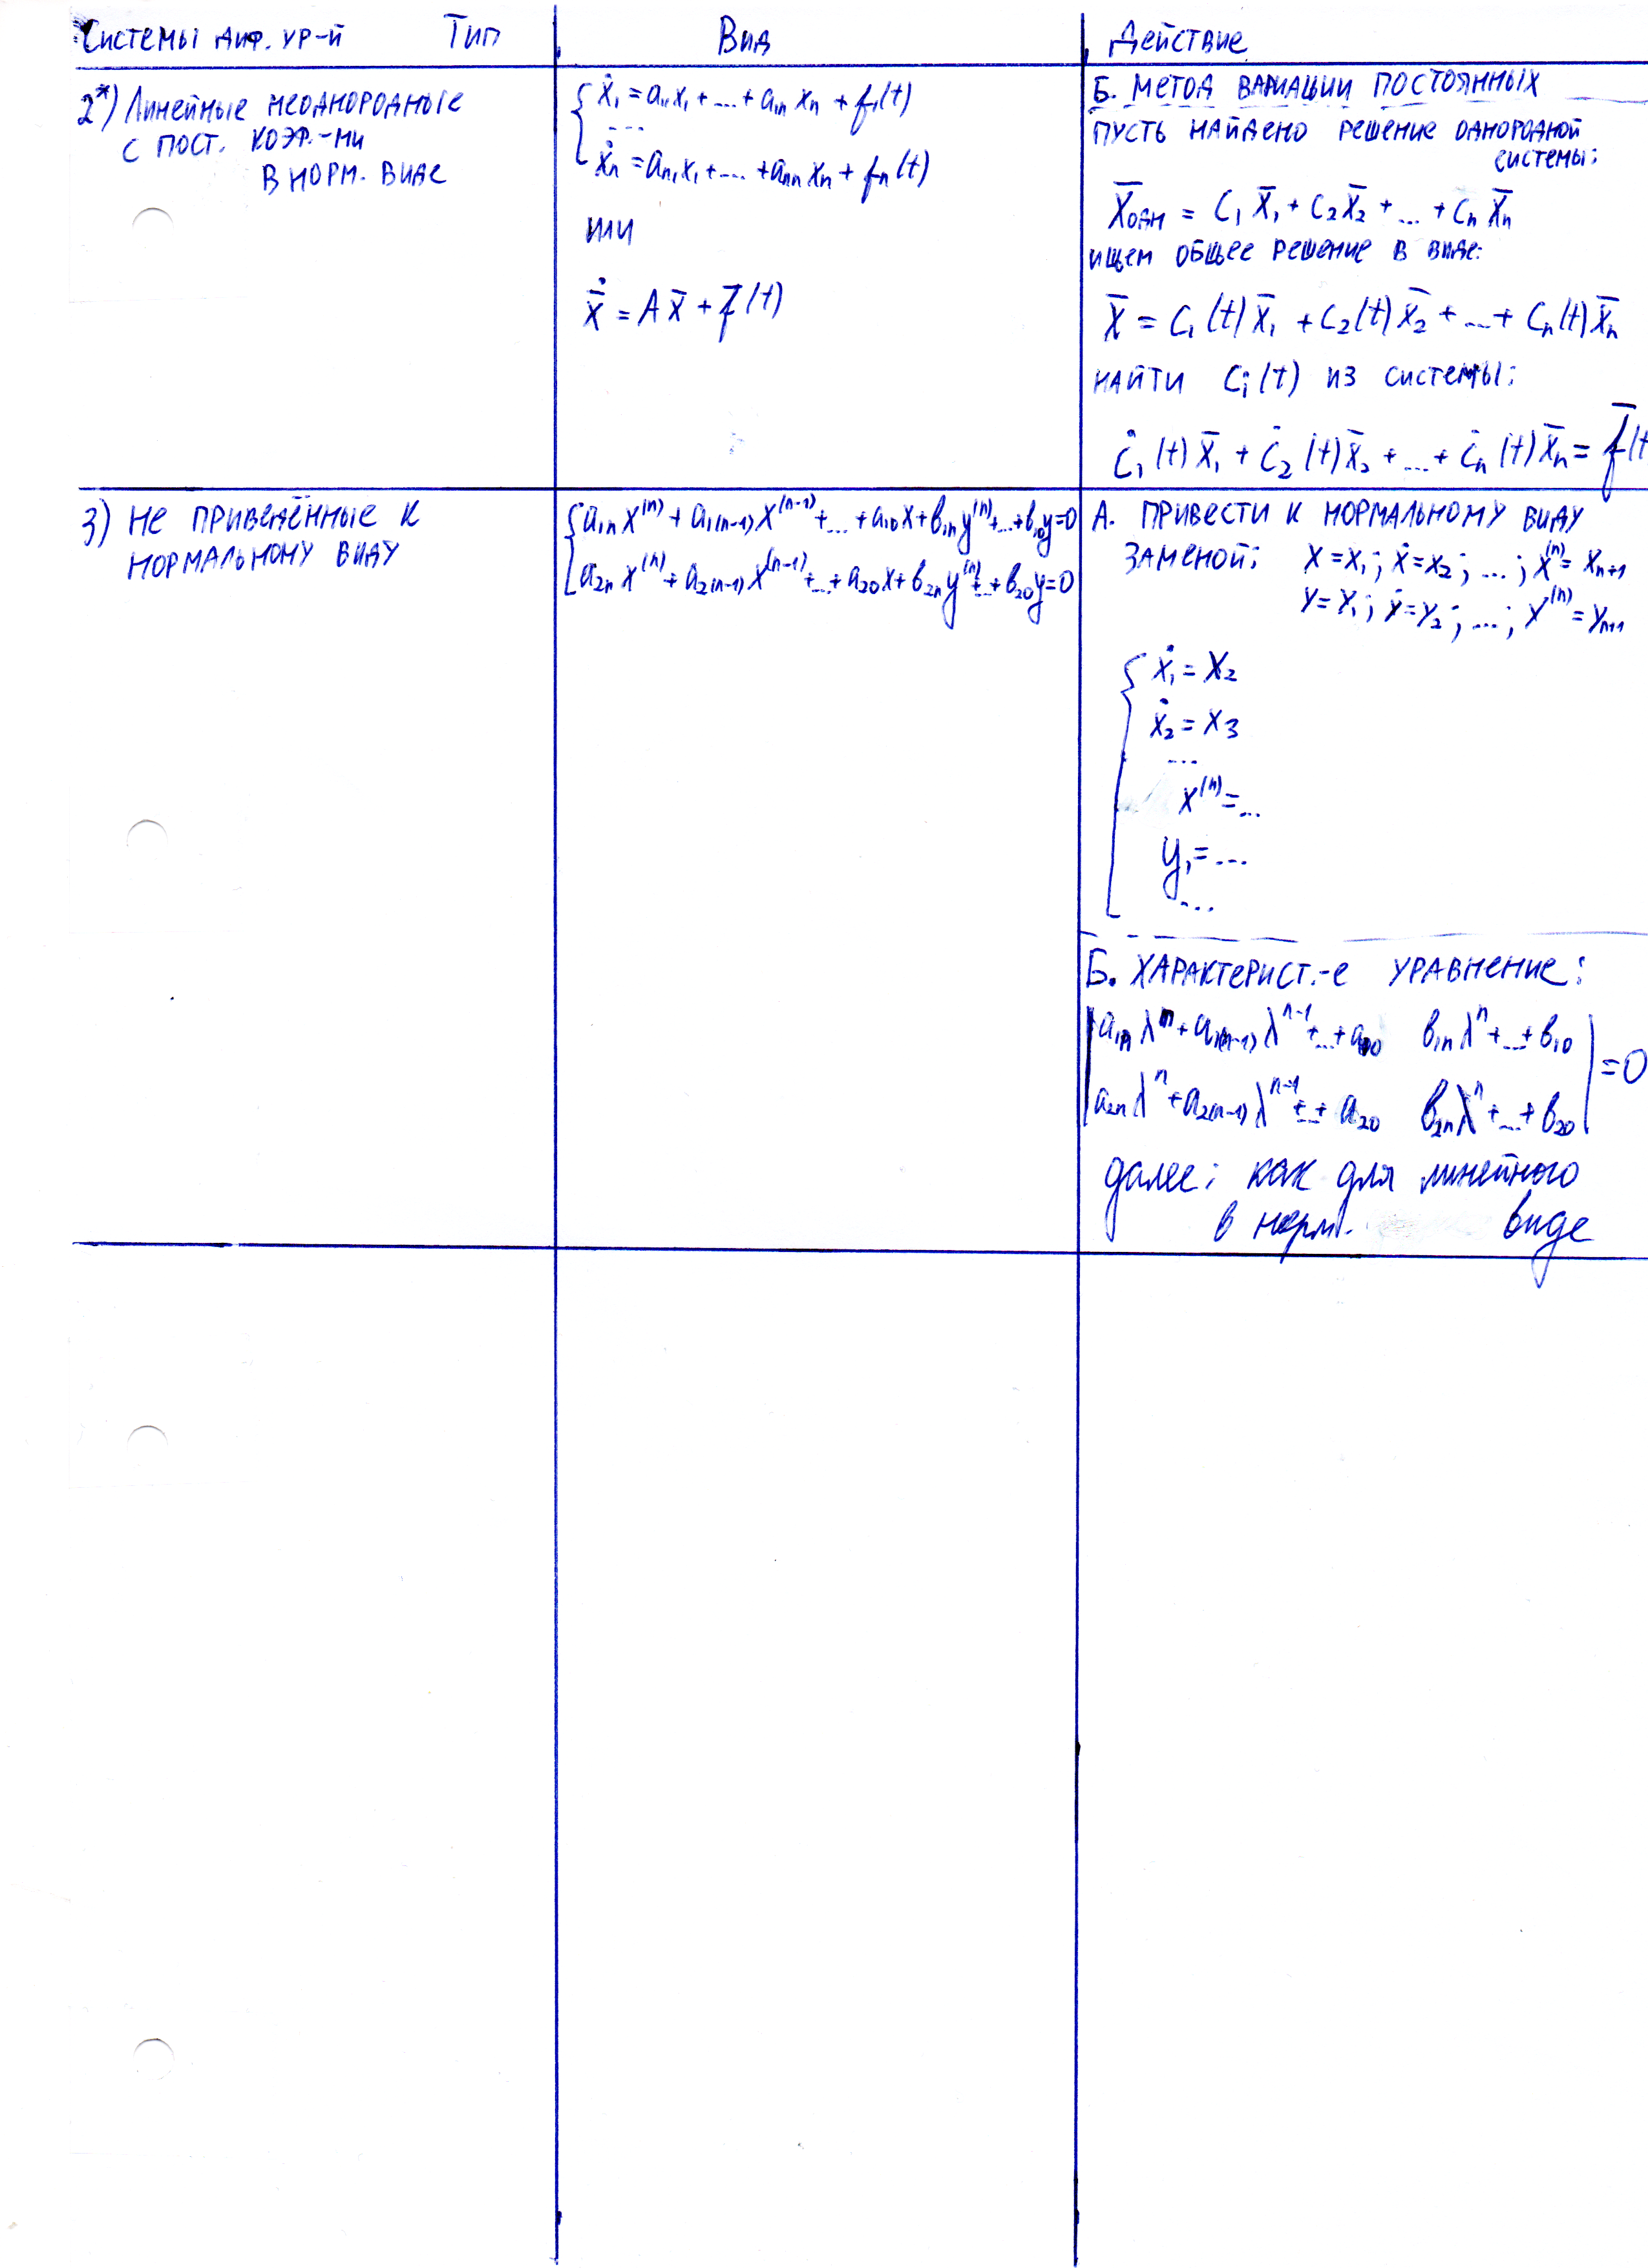 Системы диф. ур-й Тип Вид Действие
2*) Линейные неоднородные
с пост. коэф.-ми
в норм. виде
{ ẋ₁ = a₁₁x₁ + ... + a₁ₙxₙ + f₁(t)
...
ẋₙ = aₙ₁x₁ + ... + aₙₙxₙ + fₙ(t)
или
ẋ̄ = Ax̄ + f̄(t)
Б. Метод вариации постоянных
пусть найдено решение однородной
системы:
X̄одн = C₁X̄₁ + C₂X̄₂ + ... + CₙX̄ₙ
ищем общее решение в виде:
X̄ = C₁(t)X̄₁ + C₂(t)X̄₂ + ... + Cₙ(t)X̄ₙ
найти Cᵢ(t) из системы:
Ċ₁(t)X̄₁ + Ċ₂(t)X̄₂ + ... + Ċₙ(t)X̄ₙ = f̄(t
3) Не приведённые к
нормальному виду
{ a₁ₙx⁽ⁿ⁾ + a₁₍ₙ₋₁₎x⁽ⁿ⁻¹⁾ + ... + a₁₀x + b₁ₙy⁽ⁿ⁾ + ... + b₁₀y = 0
a₂ₙx⁽ⁿ⁾ + a₂₍ₙ₋₁₎x⁽ⁿ⁻¹⁾ + ... + a₂₀x + b₂ₙy⁽ⁿ⁾ + ... + b₂₀y = 0
А. Привести к нормальному виду
заменой: x = x₁; ẋ = x₂; ...; x⁽ⁿ⁾ = xₙ₊₁
y = y₁; ẏ = y₂; ...; y⁽ⁿ⁾ = yₙ₊₁
{ ẋ₁ = x₂
ẋ₂ = x₃
...
x⁽ⁿ⁾ = ...
y₁ = ...
...
Б. Характерист.-е уравнение:
| a₁ₙλⁿ + a₁₍ₙ₋₁₎λⁿ⁻¹ + ... + a₁₀ b₁ₙλⁿ + ... + b₁₀ | = 0
| a₂ₙλⁿ + a₂₍ₙ₋₁₎λⁿ⁻¹ + ... + a₂₀ b₂ₙλⁿ + ... + b₂₀ |
далее: как для линейного
в норм. виде